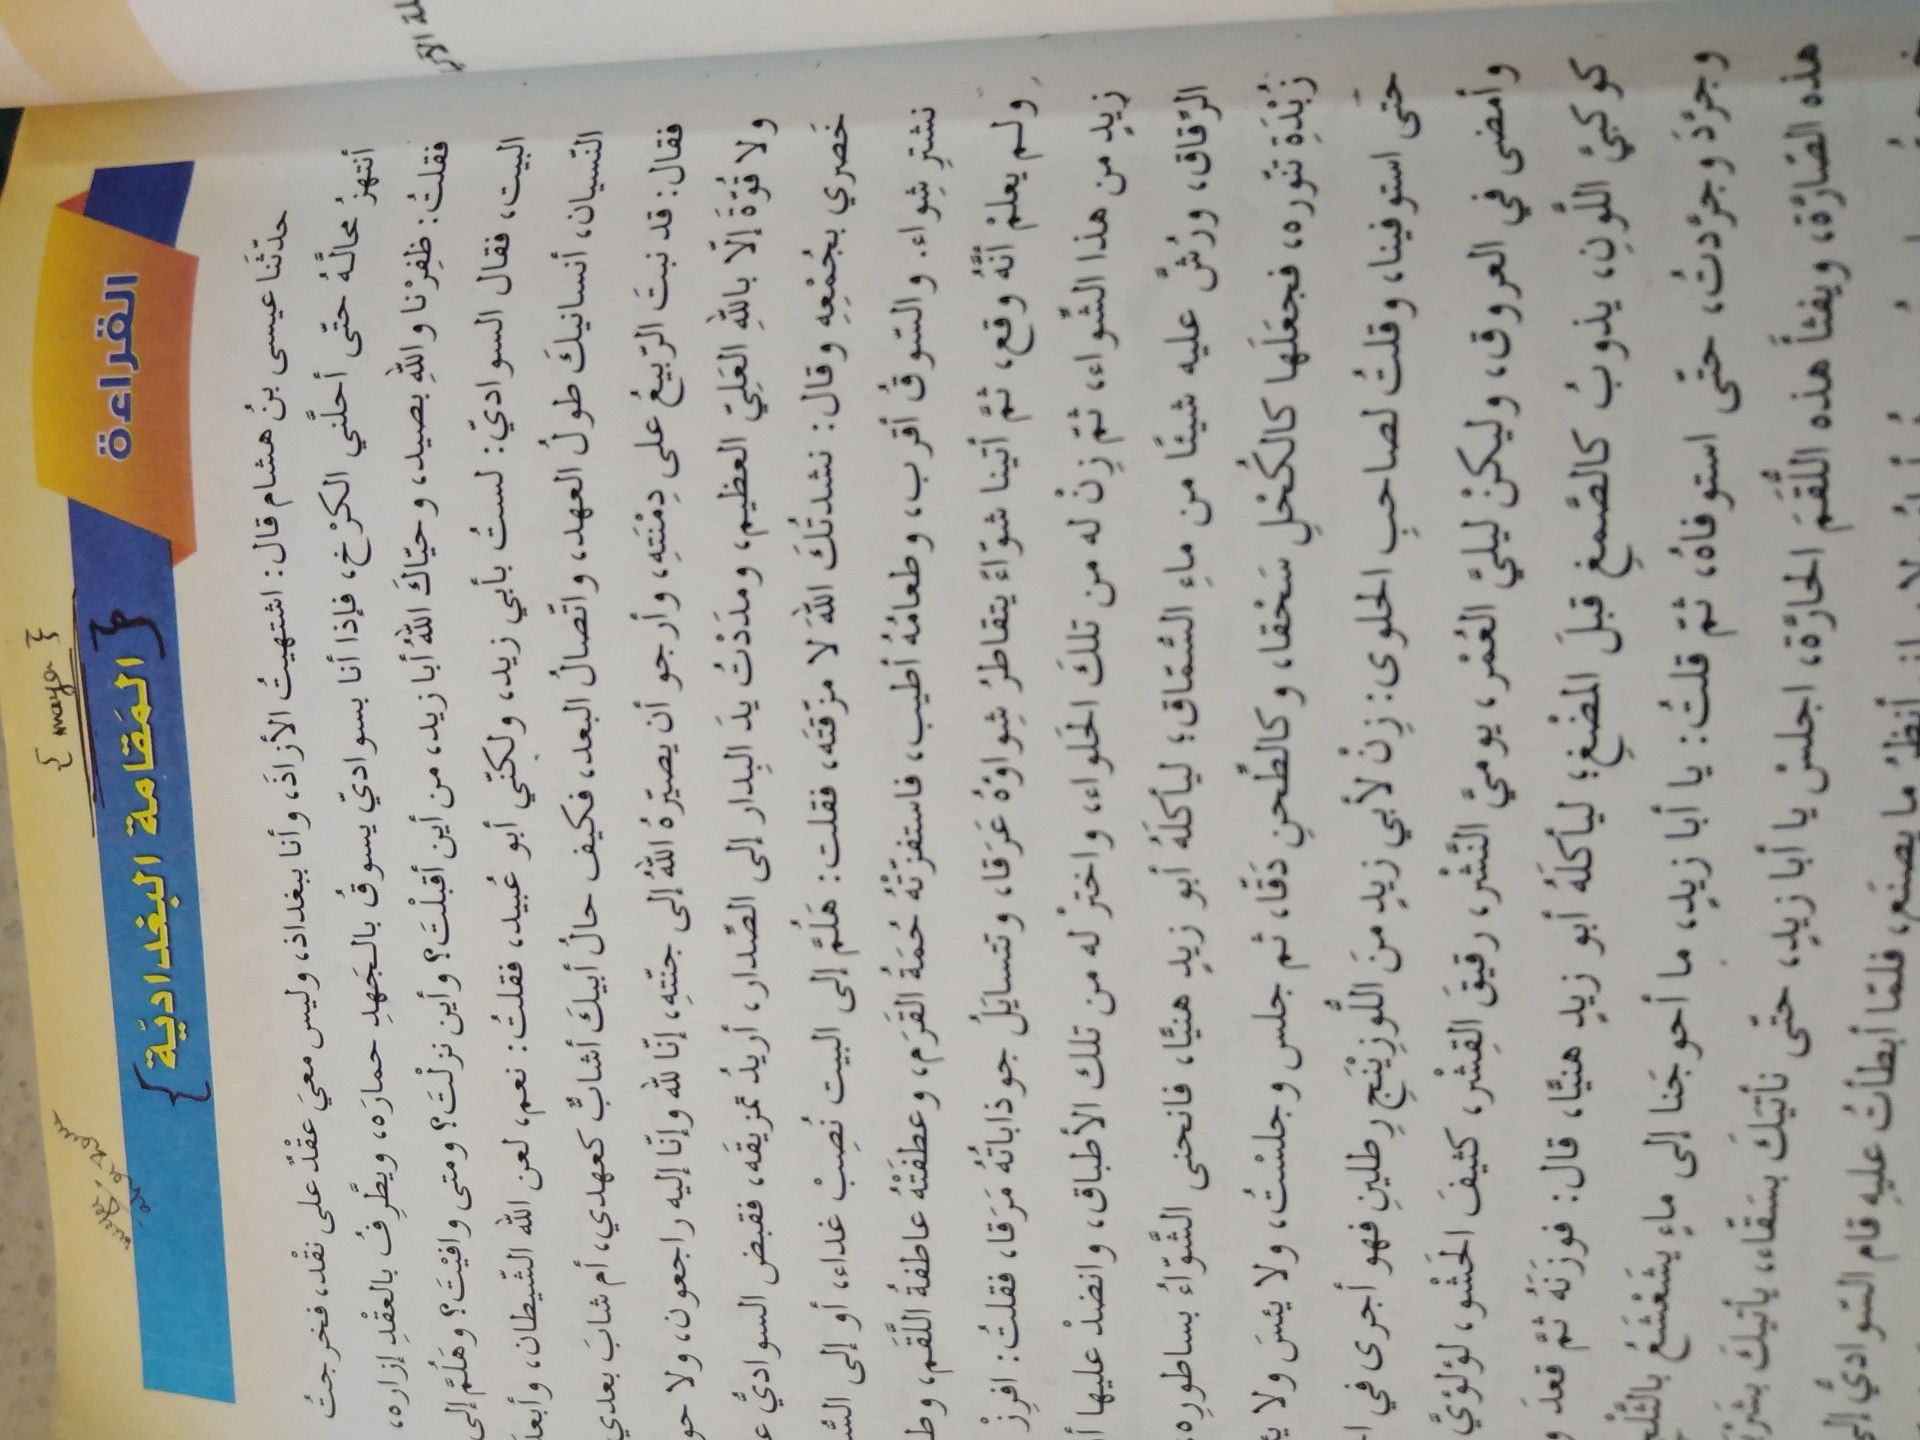 القراءة
{ maya }
{المَقامة البغداديّة}
حدّثَنا عيسى بنُ هشام قال: اشتهيتُ الأزاذَ، وأنا ببغداذ، وليس معيَ عقْدٌ على نقْد، فخرجتُ
أنتهزُ محالَّهُ حتّى أحلَّني الكرْخ، فإذا أنا بسواديّ يسوقُ بالجَهدِ حمارَه، ويطَّرِفُ بالعقْدِ إزاره،
فقلتُ: ظفِرْنا واللهِ بصيد، وحيّاكَ اللهُ أبا زيد، من أين أقبلْتَ؟ وأين نزلْتَ؟ ومتى وافيْتَ؟ وهَلُمَّ إلى
البيت، فقال السواديّ: لستُ بأبي زيد، ولكنّي أبو عُبيد، فقلتُ: نعم، لعن الله الشّيطان، وأبعدَ
النّسيان، أنسانيكَ طولُ العهد، واتّصالُ البعد، فكيف حالُ أبيكَ أشابٌّ كعهدي، أم شابَ بعدي
فقال: قد نبتَ الرّبيعُ على دِمْنَتِهِ، وأرجو أن يصيّرهُ اللهُ إلى جنّتِهِ، إنّا لله وإنّا إليه راجعون، ولا حو
ولا قُوّةَ إلّا باللهِ العَلِيّ العظيم، ومدَدْتُ يدَ البِدار إلى الصِّدار، أريدُ تمزيقَه، فقبض السواديُّ ع
خَصري بجُمْعِهِ وقال: نشدتُكَ اللهَ لا مزّقتَه، فقلت: هَلُمَّ إلى البيت نُصِبْ غداء، أو إلى السّ
نشترِ شِواء. والسّوقُ أقرب، وطعامُهُ أطيب، فاستفزّتْهُ حُمَةُ القَرَم، وعطفَتْهُ عاطفةُ اللَّقَم، وط
ولم يعلمْ أنَّهُ وقع، ثمَّ أتينا شوّاءً يتقاطرُ شِواؤهُ عَرَقا، وتتسايَلُ جوذاباتُهُ مَرَقا، فقلتُ: افرِزْ
زيدٍ من هذا الشّواء، ثمّ زِنْ له من تلكَ الحَلواء، واخترْ له من تلك الأطباق، وانضدْ عليها أ
الرّقاق، ورُشَّ عليه شيئًا من ماءِ السُّمّاق؛ ليأكلَهُ أبو زيدٍ هنيًّا، فانحنى الشَّوّاءُ بساطورِه،
زُبْدَةِ تنّوره، فجعلَها كالكُحْلِ سَحْقا، وكالطِّحنِ دَقّا، ثم جلس وجلسْتُ، ولا يئسَ ولا يئ
حتّى استوفينا، وقلتُ لصاحبِ الحلوى: زِنْ لأبي زيدٍ منَ اللُّوزِيْنَجِ رِطلينِ فهو أجرى في ا
وأمضى في العروق، وليكنْ ليليَّ العُمْر، يوميَّ النَّشْر، رقيقَ القِشْر، كثيفَ الحَشْو، لؤلؤيَّ
كوكبيَّ اللّونِ، يذوبُ كالصَّمغِ قبلَ المضْغِ؛ ليأكلَهُ أبو زيدٍ هنيًّا، قال: فوزَنَهُ ثمَّ قعدَ و
وجرّدَ وجرّدتُ، حتّى استوفاهُ، ثمّ قلتُ: يا أبا زيدٍ، ما أحوجَنا إلى ماءٍ يشَعْشَعُ بالثّلْج
هذه الصّارّة، ويفثأَ هذه اللُّقَمَ الحارّة، اجلسْ يا أبا زيدٍ، حتّى نأتيَكَ بسَقّاء، يأتيكَ بشربَ
أنظرُ ما يصنَع، فلمّا أبطأتُ عليهِ قام السّواديُّ إلى